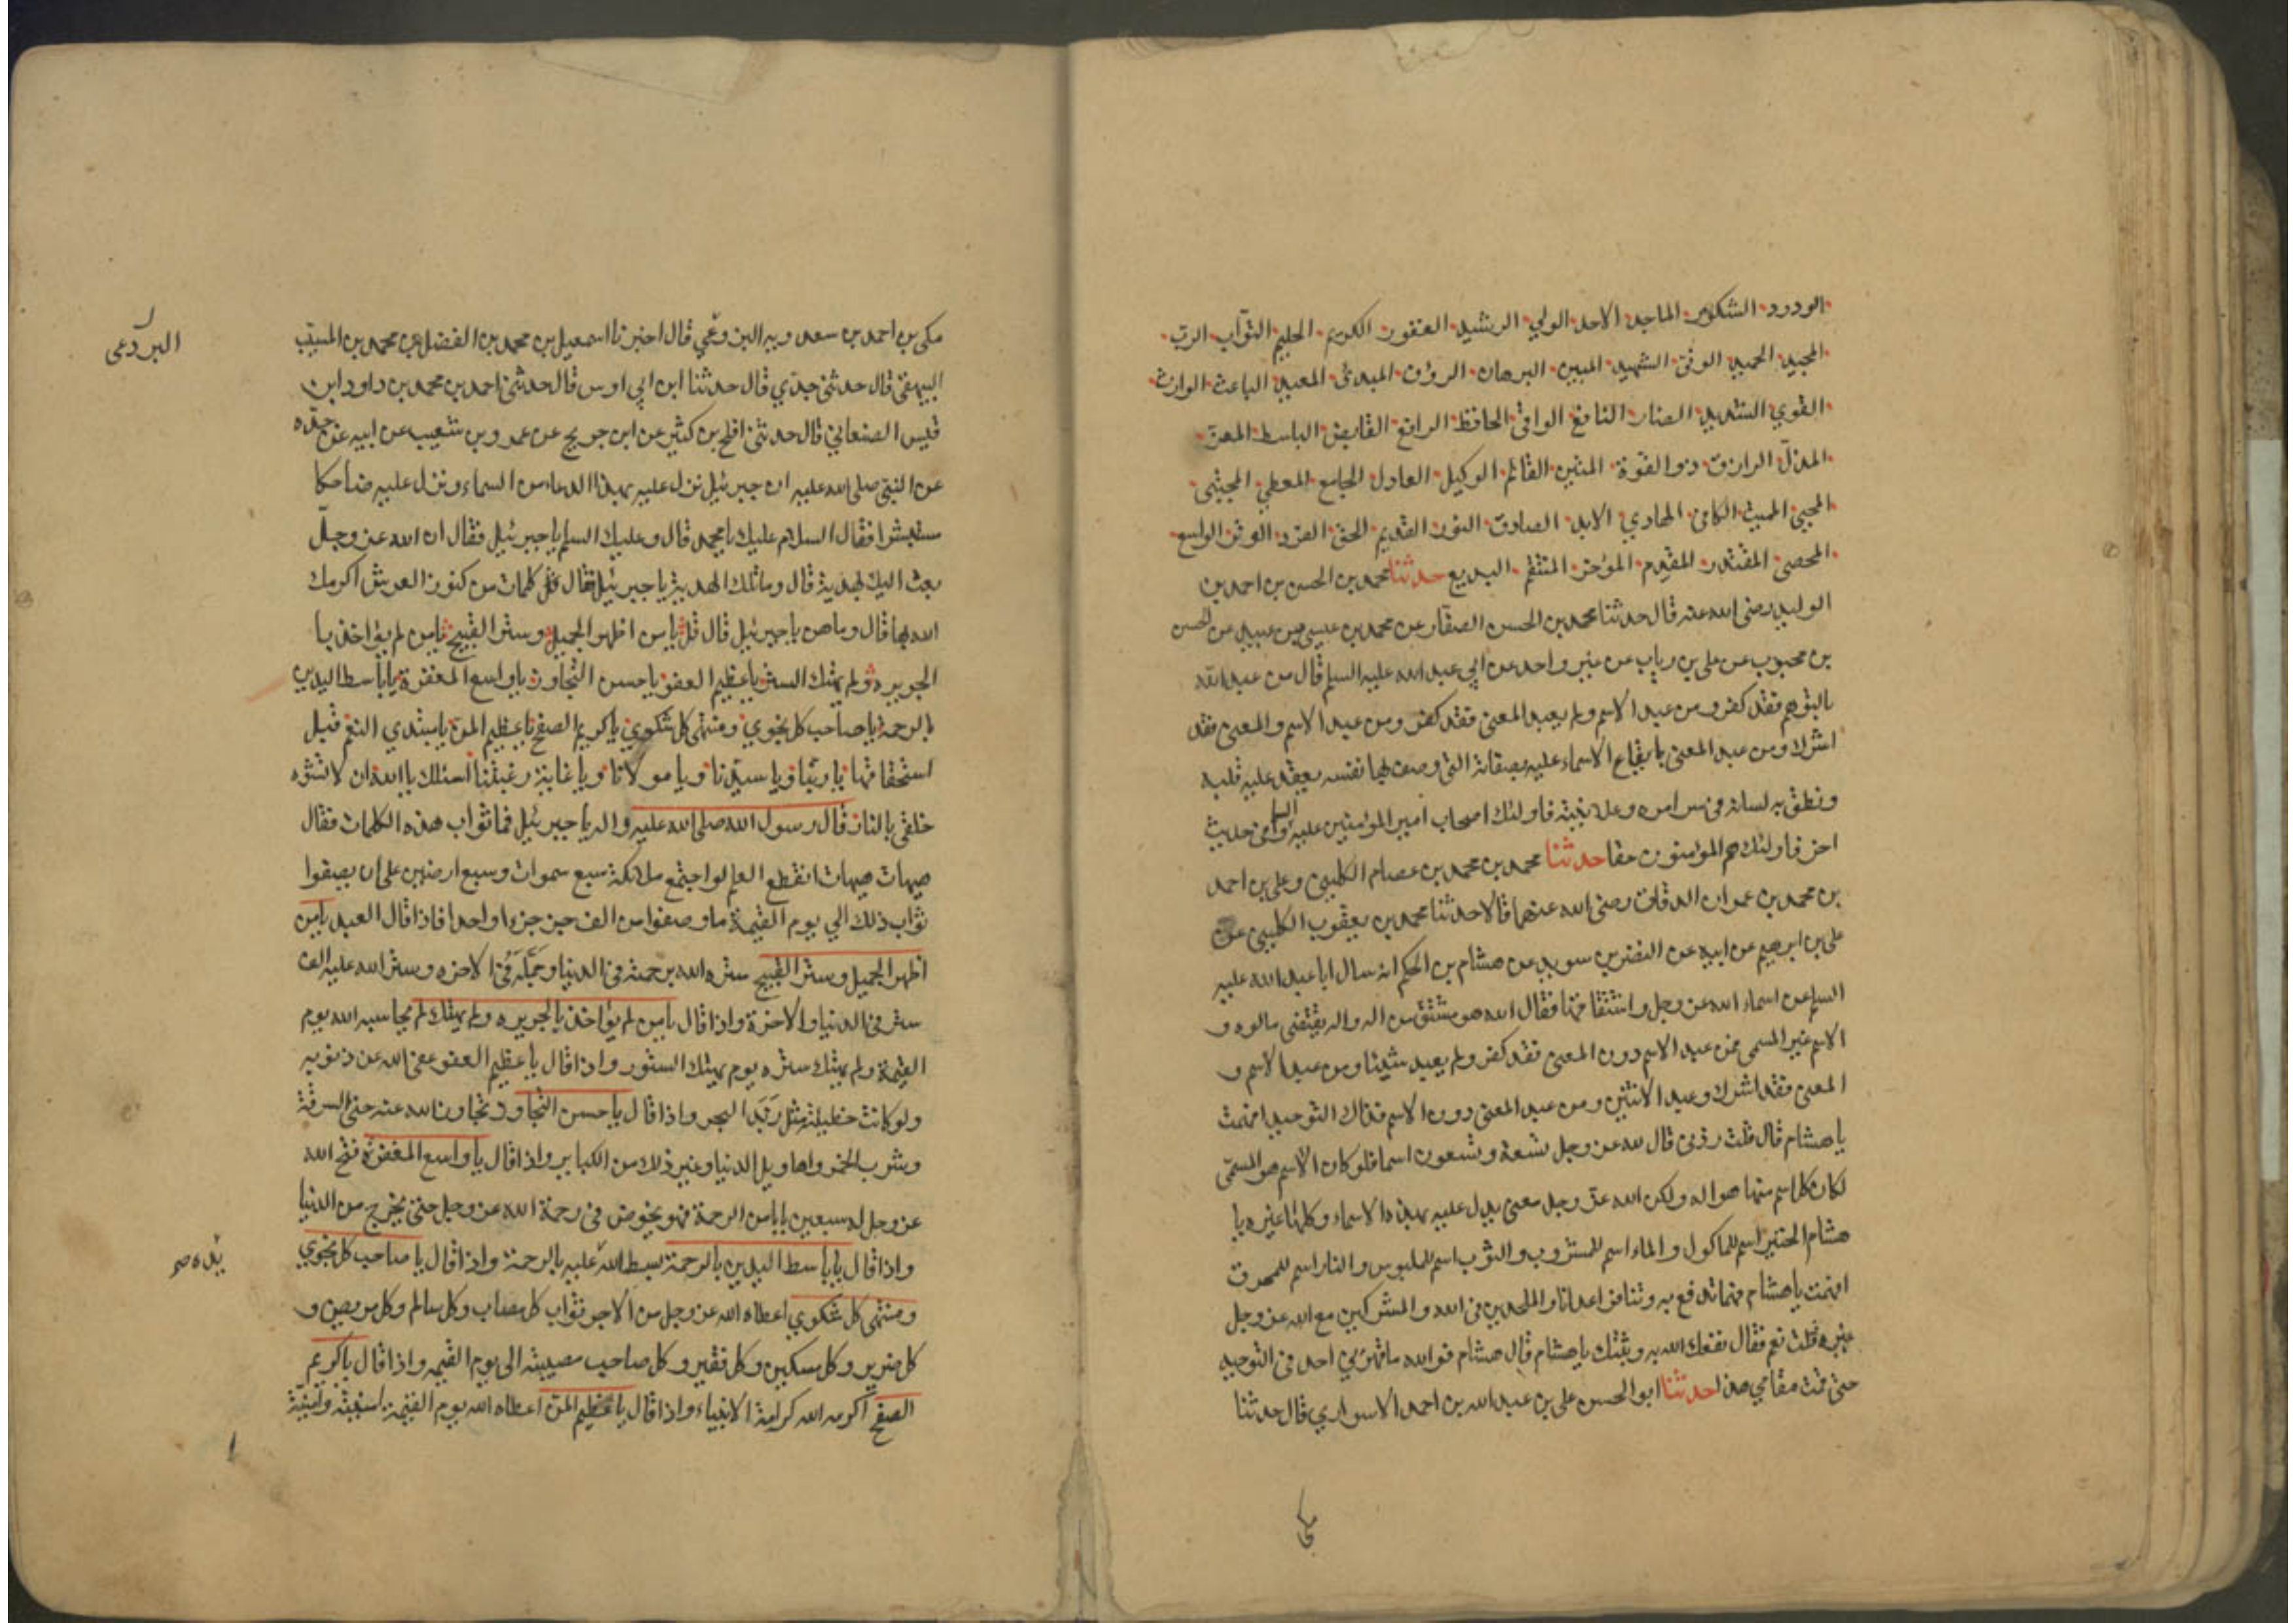 الودود الشكور الماجد الاحد الولي الرشيد الغفور الكريم الحليم التوّاب الرب
المجيد الحميد الوفى الشهيد المبين البرهان الرؤف المبدئ المعيد الباعث الوارث
القوي الشديد الضار النافع الوافى الحافظ الرافع القابض الباسط المعز
المذلّ الرازق ذو القوة المتين القائم الوكيل العادل الجامع المعطي المجتبى
المحيي المميت الكافى الهادي الابد الصادق النور القديم الحق الفرد الوتر الواسع
المحصى المقتدر المقدم المؤخر المنتقم البديع حدثنا محمد بن الحسن بن احمد بن
الوليد رضى الله عنه قال حدثنا محمد بن الحسن الصفار عن محمد بن عيسى بن عبيد عن الحسن
بن محبوب عن على بن رياب عن غير واحد عن ابي عبد الله عليه السلم قال من عبد الله
بالتوهم فقد كفر و من عبد الاسم ولم يعبد المعنى فقد كفر ومن عبد الاسم والمعنى فقد
اشرك ومن عبد المعنى بايقاع الاسماء عليه بصفاته التي وصف بها نفسه يعقد عليه قلبه
ونطق به لسانه فى سر امره وعلانيته فاولئك اصحاب امير المؤمنين عليه السلم وفى حديث
اخر فاولئك هم المؤمنون حقا حدثنا محمد بن محمد بن عصام الكليني وعلى بن احمد
بن محمد بن عمران الدقاق رضى الله عنهما قالا حدثنا محمد بن يعقوب الكليني عن
على بن ابرهيم عن ابيه عن النضر بن سويد عن هشام بن الحكم انه سال ابا عبد الله عليه
السلم عن اسماء الله عز وجل واشتقاقها فقال الله هو مشتق من اله واله يقتضى مالوه و
الاسم غير المسمى فمن عبد الاسم دون المعنى فقد كفر ولم يعبد شيئا ومن عبد الاسم و
المعنى فقد اشرك وعبد الاثنين ومن عبد المعنى دون الاسم فذاك التوحيد افهمت
يا هشام قال قلت زدنى قال لله عز وجل تسعة وتسعون اسما فلو كان الاسم هو المسمّى
لكان كل اسم منها هو اله ولكن الله عز وجل معنى يدل عليه بهذه الاسماء وكلها غيره يا
هشام الخبز اسم للماكول والماء اسم للمشروب والثوب اسم للملبوس والنار اسم للمحرق
افهمت يا هشام فهما تدفع به وتنافر اعدانا والملحدين فى الله والمشركين مع الله عز وجل
غيره قلت نعم فقال نفعك الله به وثبتك يا هشام قال هشام فوالله ما قهرني احد فى التوحيد
حتى قمت مقامي هذا حدثنا ابو الحسن على بن عبد الله بن احمد الاسواري قال حدثنا
مكى
مكى بن احمد بن سعدويه البرذعي قال اخبرنا اسمعيل بن محمد بن الفضل بن محمد بن المسيب
البيهقى قال حدثنى جدّي قال حدثنا ابن ابي اويس قال حدثنى احمد بن محمد بن داود ابن
قيس الصنعاني قال حدثنى افلح بن كثير عن ابن جريج عن عمرو بن شعيب عن ابيه عن جدّه
عن النبى صلى الله عليه ان جبرئيل نزل عليه بهذا الدعاء من السماء ونزل عليه ضاحكا
مستبشرا فقال السلم عليك يا محمد قال وعليك السلم يا جبرئيل فقال ان الله عز وجلّ
بعث اليك بهدية قال وما تلك الهدية يا جبرئيل فقال كلمات من كنوز العرش اكرمك
الله بها قال وما هن يا جبرئيل قال قل يا من اظهر الجميل وستر القبيح يا من لم يؤاخذ با
الجريره ولم يهتك الستر يا عظيم العفو يا حسن التجاوز يا واسع المغفرة يا باسط اليدين
بالرحمة يا صاحب كل نجوي ومنتهى كل شكوي يا كريم الصفح يا عظيم المن يا مبتدي النعم قبل
استحقاقها يا ربّنا ويا سيّدنا ويا مولانا ويا غاية رغبتنا اسئلك يا الله ان لا تشوّه
خلقى بالنار قال رسول الله صلى الله عليه واله يا جبرئيل فما ثواب هذه الكلمات فقال
هيهات هيهات انقطع العلم لو اجتمع ملائكة سبع سموات وسبع ارضين على ان يصفوا
ثواب ذلك الي يوم القيمة ما وصفوا من الف جزء جزءا واحدا فاذا قال العبد يا من
اظهر الجميل وستر القبيح ستره الله برحمته فى الدنيا وجمّله فى الاخره وستر الله عليه الف
ستر فى الدنيا والاخرة واذا قال يا من لم يؤاخذ بالجريره ولم يهتك لم يحاسبه الله يوم
القيمة ولم يهتك ستره يوم يهتك الستور واذا قال يا عظيم العفو عفى الله عن ذنوبه
ولو كانت خطيئته مثل زبد البحر واذا قال يا حسن التجاوز تجاوز الله عنه حتى السرقة
وشرب الخمر واهاويل الدنيا وغير ذلك من الكباير واذا قال يا واسع المغفرة فتح الله
عز وجل له سبعين بابا من الرحمة فهو يخوض فى رحمة الله عز وجل حتى يخرج من الدنيا
واذا قال يا باسط اليدين بالرحمة بسط الله عليه بالرحمة واذا قال يا صاحب كل نجوي
ومنتهى كل شكوي اعطاه الله عز وجل من الاجر ثواب كل مصاب وكل سالم وكل مريض و
كل ضرير وكل مسكين وكل فقير وكل صاحب مصيبة الى يوم القيمه واذا قال يا كريم
الصفح اكرمه الله كرامة الانبياء واذا قال يا عظيم المن اعطاه الله يوم القيمة امنيته وامنية
البردعى
يده صح